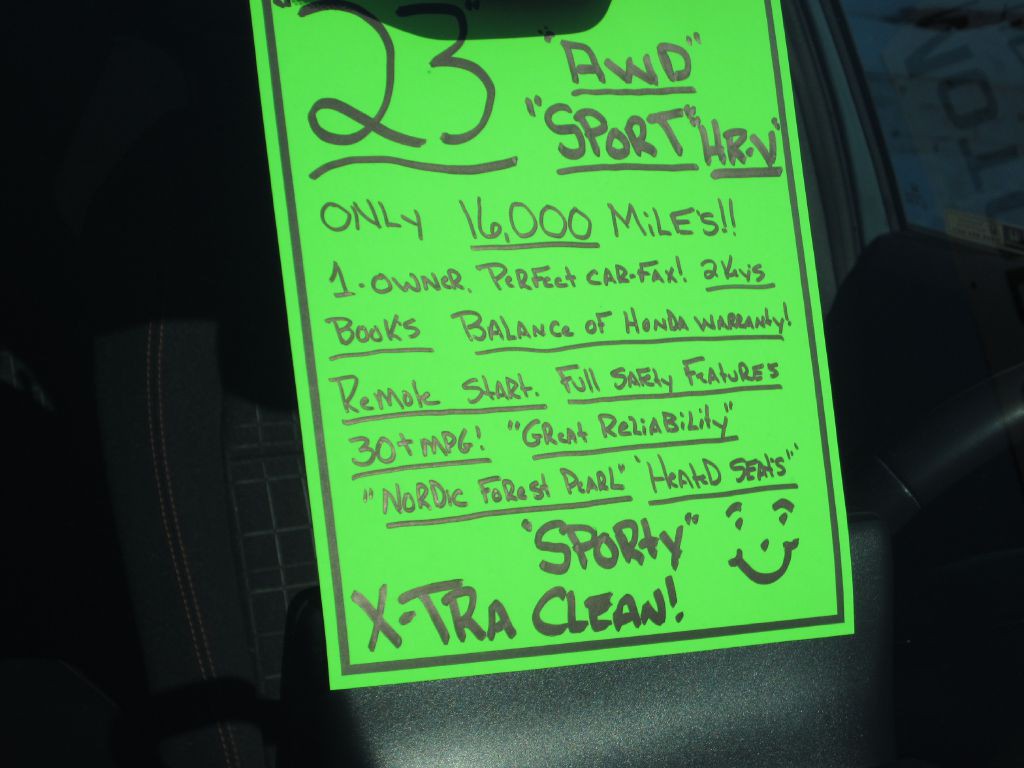 "23"
"AWD"
"SPORT" HR-V"
ONLY 16,000 MILE'S!!
1-OWNER. PERFECT CAR-FAX! 2 KEYS
BOOKS BALANCE OF HONDA WARRANTY!
REMOTE START. FULL SAFETY FEATURES
30+ MPG! "GREAT RELIABILITY"
"NORDIC FOREST PEARL" 'HEATED SEATS"
"SPORTY"
X-TRA CLEAN!